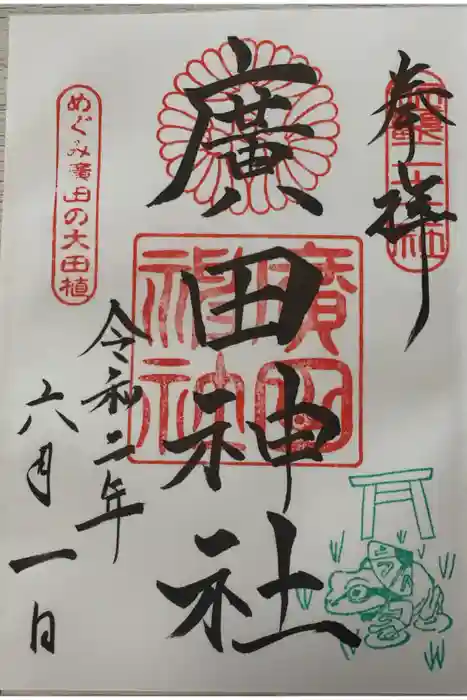 奉拝
廣田神社
令和二年
六月一日
めぐみ廣田の大田植
廣田神社